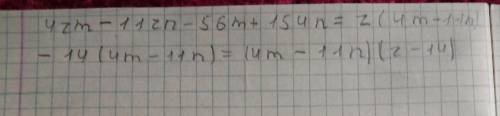 4zm - 11zn - 56m + 154n = z(4m - 11n)
- 14(4m - 11n) = (4m - 11n)(z - 14)